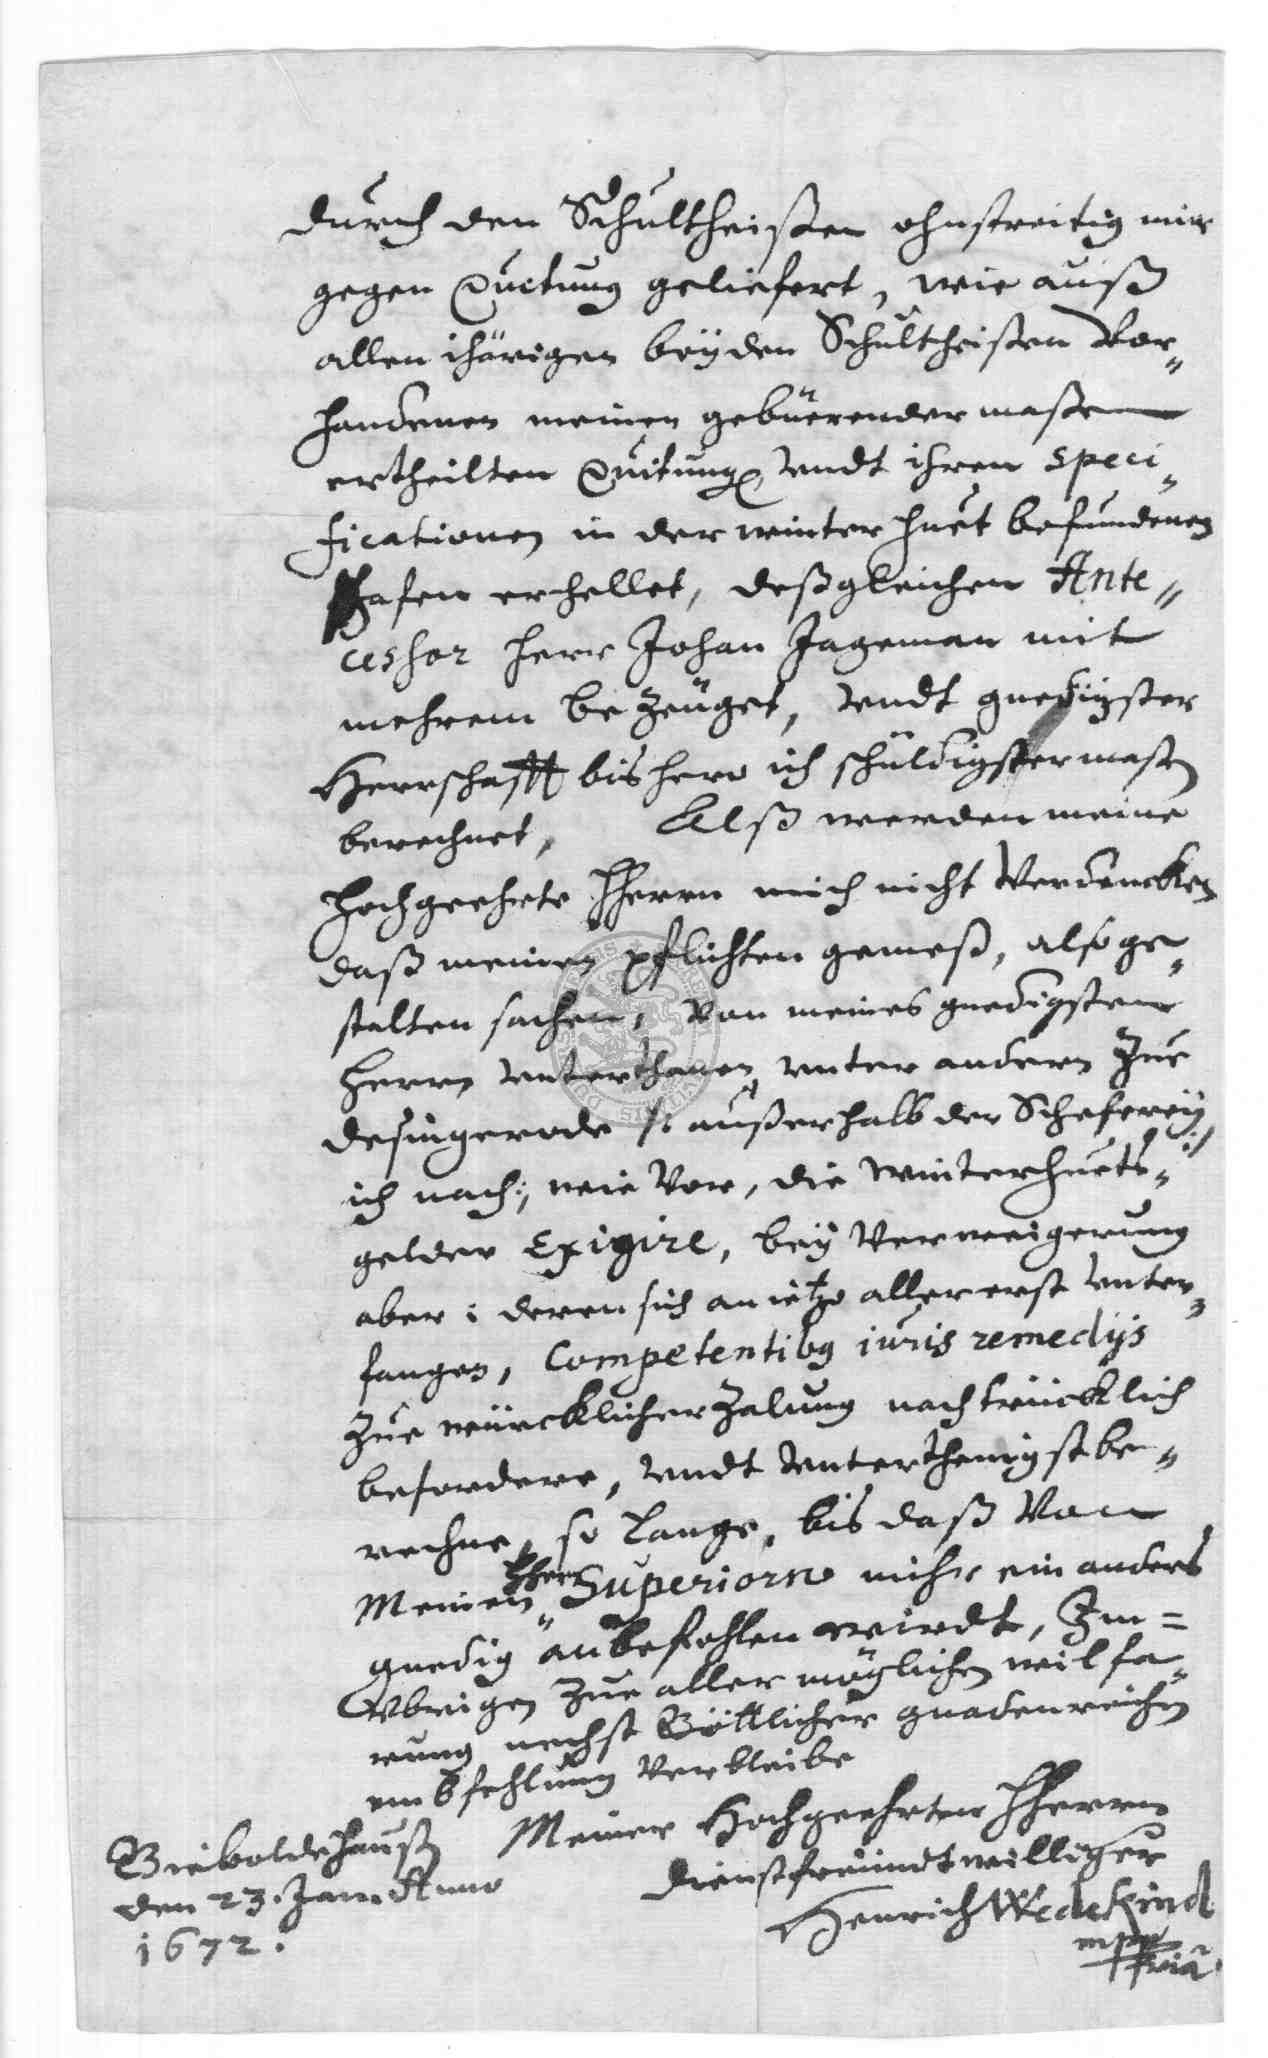 durch den Schultheißen ohnstreitig mir
gegen Quitung geliefert, wie auß
allen ihärigen beÿden Schultheißen Vor„
handenen meinen gebüerender maßen
ertheilten Quitung, Undt ihren speci„
ficationen in der winter huet befundenen
Schafen erhellet, deßgleichen Ante„
cessor herr Johan Jageman mit
mehrem bezeuget, Undt gnedigster
Herrschafft bishero ich schüldigster maßen
berechnet, Alß werden meine
hochgeehrte Hherrn mich nicht Verdencken
daß meinen pflichten gemeß, also ge„
stalten sachen, Von meines gnedigsten
Herrn Unterthanen Unter andern Zue
Desingerode /: außerhalb der Scheferey :/
ich nach, wie Vor, die winterhuets„
gelder Exigire, beÿ Verweigerung
aber: deren sich anietzo allererst Unter„
fangen, Competentibus iuris remedijs
Zue würcklicher Zalung nachtrücklich
befordere, Undt Unterthenigst be„
rechne, so lange, bis daß Von
Meinen Hherrn Superiorn mihr ein anders
gnedig anbefohlen wirdt, Im=
Vbrigen Zue aller möglichen wilfa„
rung nechst Göttlicher gnadenreichen
embfehlung Verbleibe
Meiner Hochgeehrten Hherrn
dienstfreundtwilliger
Henrich Wedekind
mpp
Gieboldehauß
den 23. Jan. Anno
1672.